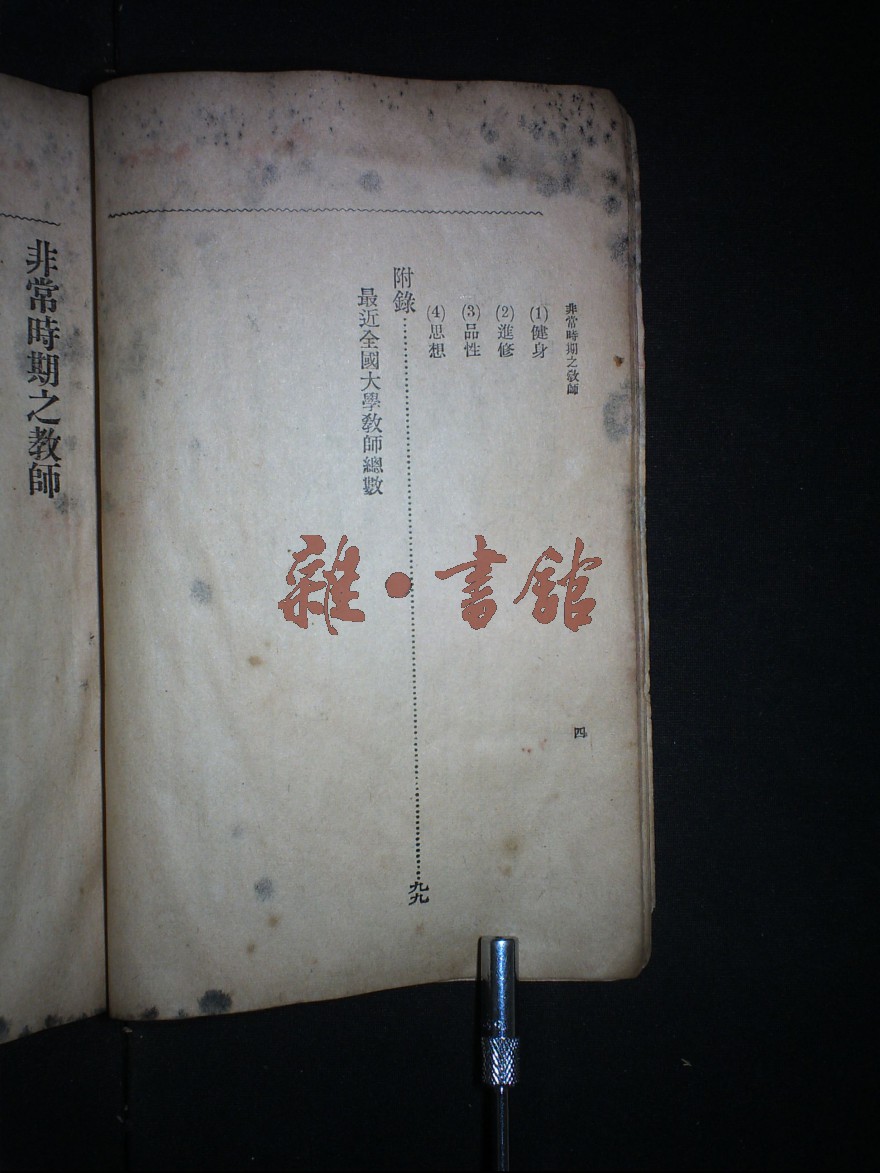 非常時期之敎師
四
(1)健身
(2)進修
(3)品性
(4)思想
附錄……九九
最近全國大學敎師總數
非常時期之教師
雜·書館